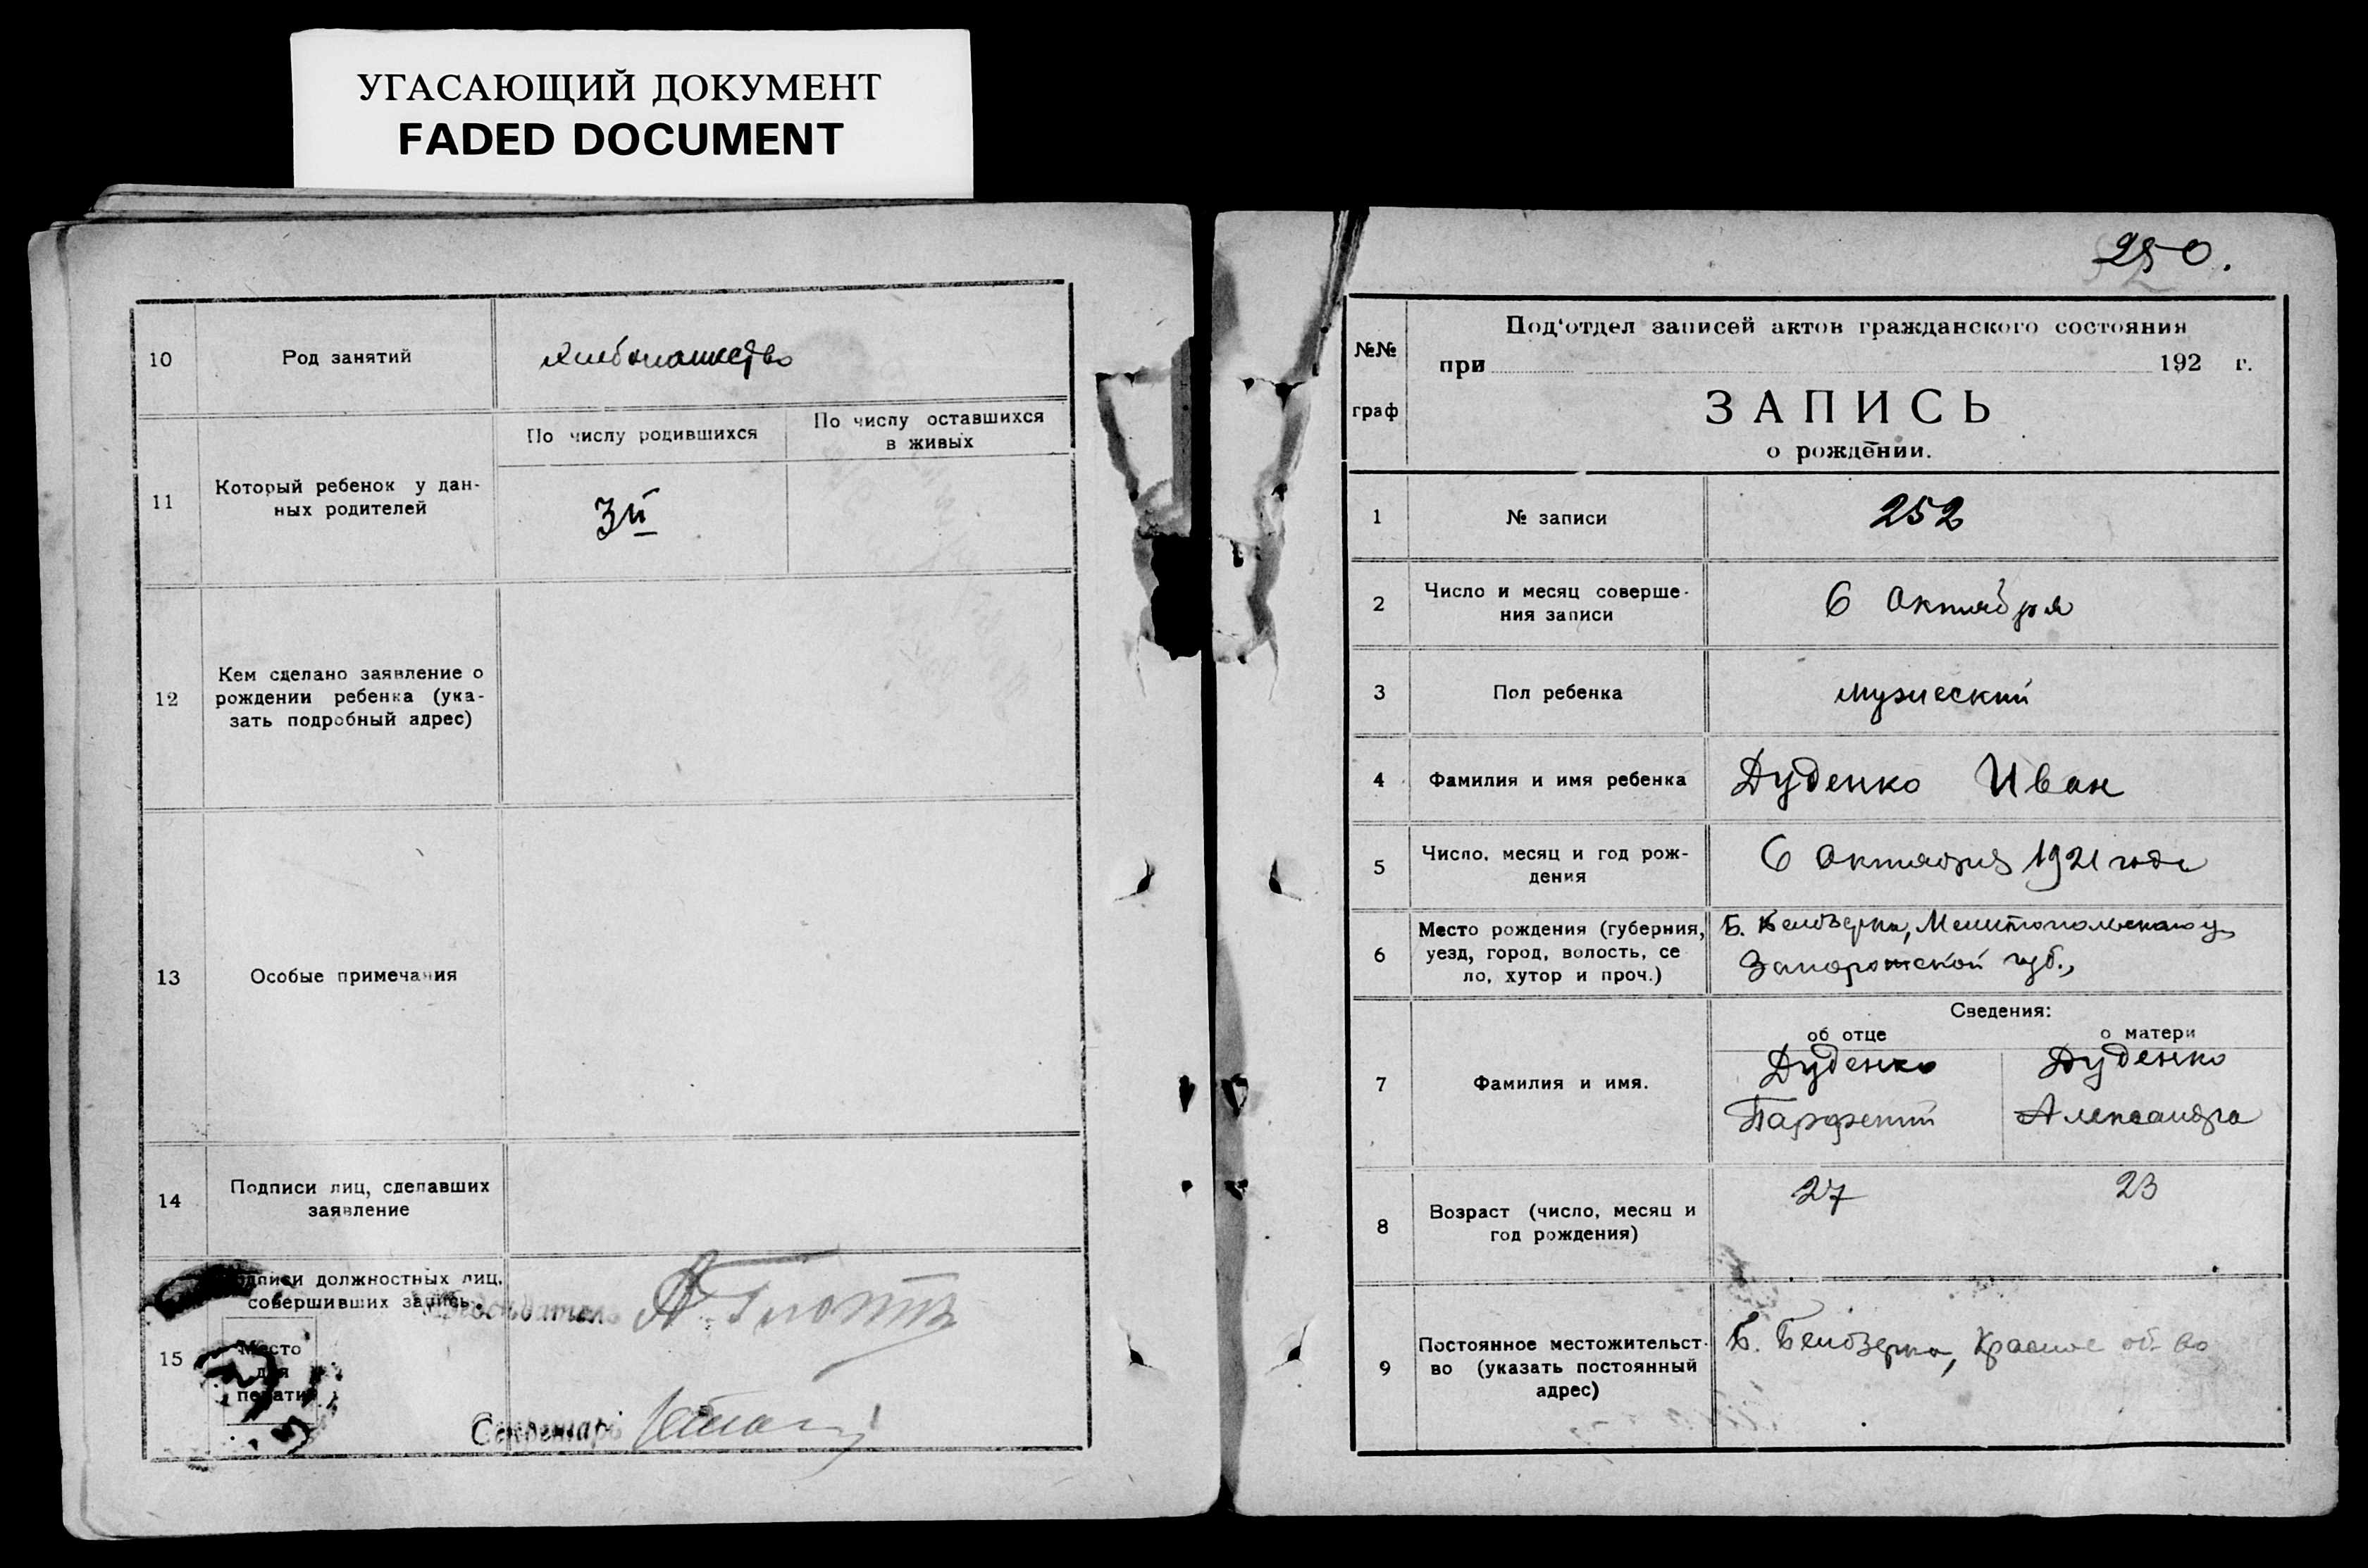 УГАСАЮЩИЙ ДОКУМЕНТ
FADED DOCUMENT
10
Род занятий
хлебопашество
11
Который ребенок у дан-
ных родителей
По числу родившихся
По числу оставшихся
в живых
3й
12
Кем сделано заявление о
рождении ребенка (ука-
зать подробный адрес)
13
Особые примечания
14
Подписи лиц, сделавших
заявление
15
Подписи должностных лиц,
совершивших запись.
Председатель
Место
для
печати
Секретарь
250.
№№
граф
Под‘отдел записей актов гражданского состояния
при 192 г.
ЗАПИСЬ
о рождении.
1
№ записи
252
2
Число и месяц соверше-
ния записи
6 Октября
3
Пол ребенка
мужеский
4
Фамилия и имя ребенка
Дуденко Иван
5
Число, месяц и год рож-
дения
6 Октября 1921 года
6
Место рождения (губерния,
уезд, город, волость, се
ло, хутор и проч.)
Б. Белозерка, Мелитопольскаго у.
Запорожской губ.,
Сведения:
об отце
о матери
7
Фамилия и имя.
Дуденко
Парфений
Дуденко
Александра
8
Возраст (число, месяц и
год рождения)
27
23
9
Постоянное местожительст-
во (указать постоянный
адрес)
Б. Белозерка, Красное об-во